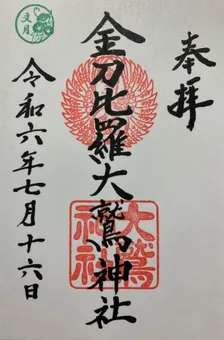 奉拝
金刀比羅大鷲神社
大鷲
神社
令和六年七月十六日
文月